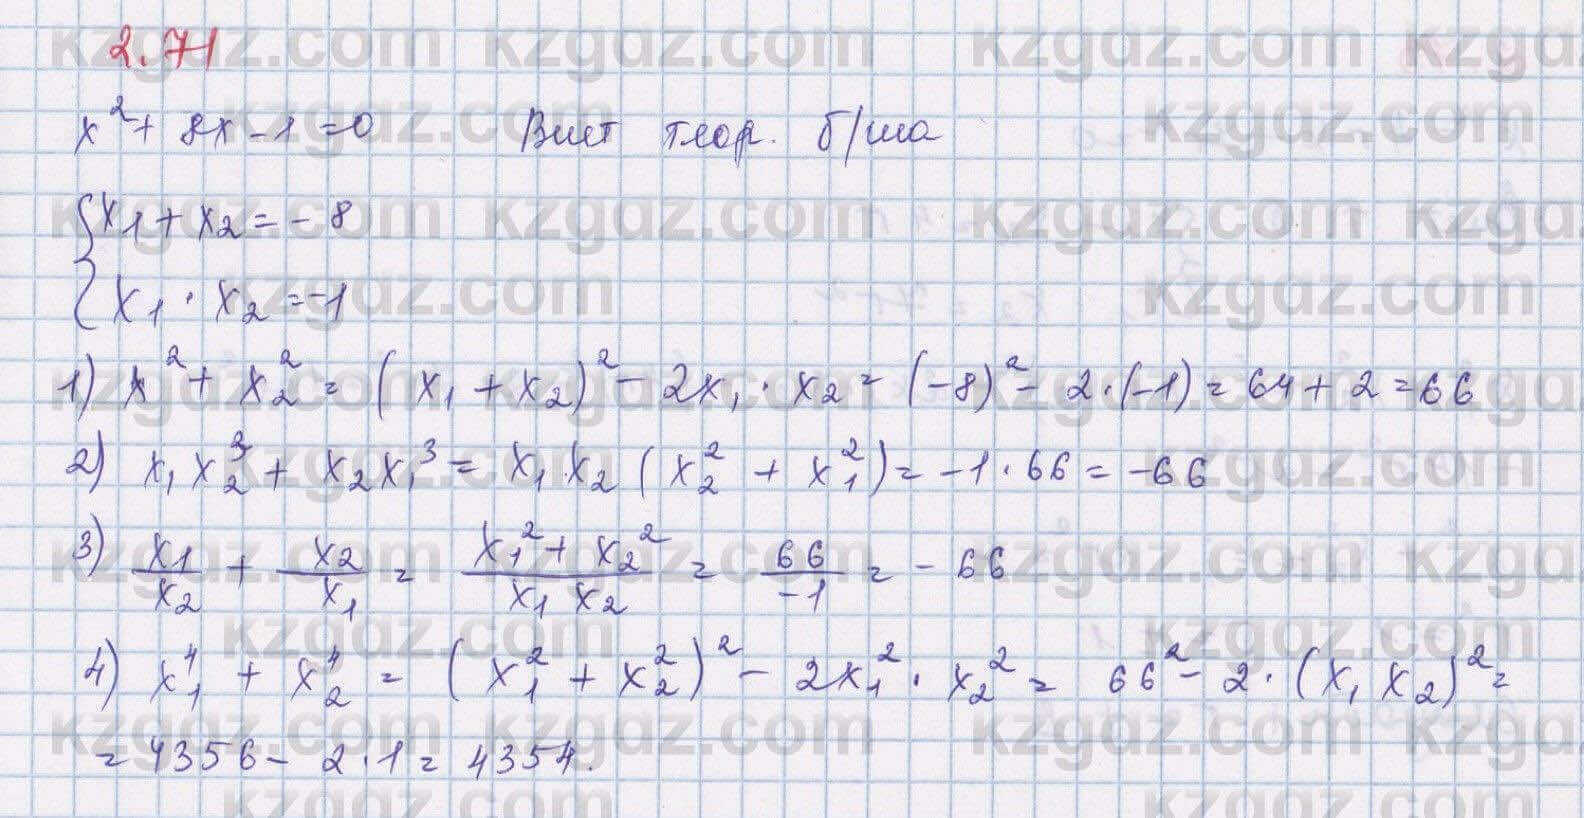 2.71
x² + 8x - 1 = 0 Виет теор. б/ша
{ x1 + x2 = - 8
x1 · x2 = -1
1) x² + x₂² = ( x₁ + x₂)² - 2x₁ · x₂ = (-8)² - 2·(-1) = 64 + 2 = 66
2) x₁x₂³ + x₂x₁³ = x₁x₂ (x₂² + x₁²) = -1·66 = -66
3) x1/x2 + x2/x1 = (x₁² + x₂²)/(x1 x2) = 66/-1 = - 66
4) x₁⁴ + x₂⁴ = (x₁² + x₂²)² - 2x₁² · x₂² = 66² - 2·(x₁ x₂)² =
= 4356 - 2·1 = 4354.
kzgdz.com